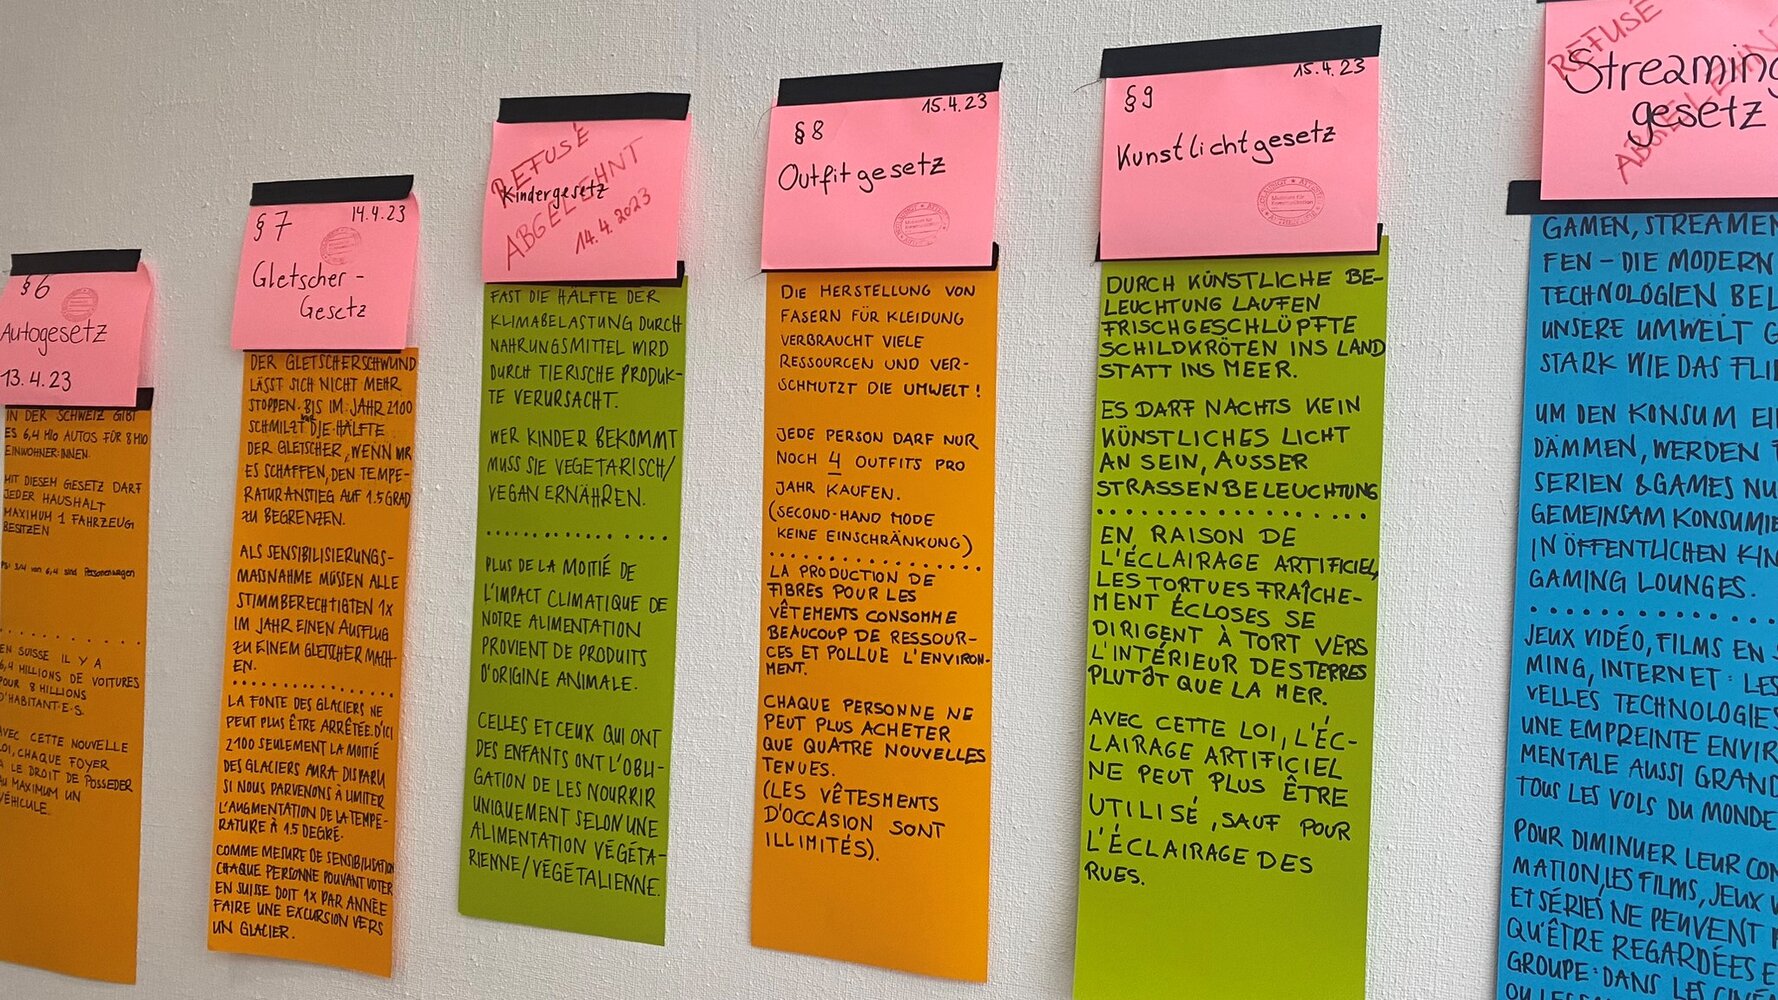 §6
Autogesetz
13.4.23
IN DER SCHWEIZ GIBT
ES 6,4 MIO AUTOS FÜR 8 MIO
EINWOHNER:INNEN.
MIT DIESEM GESETZ DARF
JEDER HAUSHALT
MAXIMUM 1 FAHRZEUG
BESITZEN
PS: 3/4 von 6,4 sind Personenwagen
EN SUISSE IL Y A
6,4 MILLIONS DE VOITURES
POUR 8 MILLIONS
D'HABITANT·E·S.
AVEC CETTE NOUVELLE
LOI, CHAQUE FOYER
A LE DROIT DE POSSEDER
AU MAXIMUM UN
VÉHICULE.
§7 14.4.23
Gletscher-
Gesetz
DER GLETSCHERSCHWUND
LÄSST SICH NICHT MEHR
STOPPEN. BIS IM JAHR 2100
SCHMILZT NUR DIE HÄLFTE
DER GLETSCHER, WENN WIR
ES SCHAFFEN, DEN TEMPE-
RATURANSTIEG AUF 1.5 GRAD
ZU BEGRENZEN.
ALS SENSIBILISIERUNGS-
MASSNAHME MÜSSEN ALLE
STIMMBERECHTIGTEN 1X
IM JAHR EINEN AUSFLUG
ZU EINEM GLETSCHER MACH-
EN.
LA FONTE DES GLACIERS NE
PEUT PLUS ÊTRE ARRÊTÉE. D'ICI
2100 SEULEMENT LA MOITIÉ
DES GLACIERS AURA DISPARU
SI NOUS PARVENONS À LIMITER
L'AUGMENTATION DE LA TEMPE-
RATURE À 1.5 DEGRÉ.
COMME MESURE DE SENSIBILISATION
CHAQUE PERSONNE POUVANT VOTER
EN SUISSE DOIT 1X PAR ANNÉE
FAIRE UNE EXCURSION VERS
UN GLACIER.
REFUSÉ
Kindergesetz
ABGELEHNT
14.4.2023
FAST DIE HÄLFTE DER
KLIMABELASTUNG DURCH
NAHRUNGSMITTEL WIRD
DURCH TIERISCHE PRODUK-
TE VERURSACHT.
WER KINDER BEKOMMT
MUSS SIE VEGETARISCH/
VEGAN ERNÄHREN.
PLUS DE LA MOITIÉ DE
L'IMPACT CLIMATIQUE DE
NOTRE ALIMENTATION
PROVIENT DE PRODUITS
D'ORIGINE ANIMALE.
CELLES ET CEUX QUI ONT
DES ENFANTS ONT L'OBLI-
GATION DE LES NOURRIR
UNIQUEMENT SELON UNE
ALIMENTATION VÉGÉTA-
RIENNE/VÉGÉTALIENNE.
§8 15.4.23
Outfitgesetz
DIE HERSTELLUNG VON
FASERN FÜR KLEIDUNG
VERBRAUCHT VIELE
RESSOURCEN UND VER-
SCHMUTZT DIE UMWELT!
JEDE PERSON DARF NUR
NOCH 4 OUTFITS PRO
JAHR KAUFEN.
(SECOND-HAND MODE
KEINE EINSCHRÄNKUNG)
LA PRODUCTION DE
FIBRES POUR LES
VÊTEMENTS CONSOMME
BEAUCOUP DE RESSOUR-
CES ET POLLUE L'ENVIRON-
MENT.
CHAQUE PERSONNE NE
PEUT PLUS ACHETER
QUE QUATRE NOUVELLES
TENUES.
(LES VÊTESMENTS
D'OCCASION SONT
ILLIMITÉS).
§9 15.4.23
Kunstlichtgesetz
DURCH KÜNSTLICHE BE-
LEUCHTUNG LAUFEN
FRISCHGESCHLÜPFTE
SCHILDKRÖTEN INS LAND
STATT INS MEER.
ES DARF NACHTS KEIN
KÜNSTLICHES LICHT
AN SEIN, AUSSER
STRASSENBELEUCHTUNG
EN RAISON DE
L'ÉCLAIRAGE ARTIFICIEL,
LES TORTUES FRAÎCHE-
MENT ÉCLOSES SE
DIRIGENT À TORT VERS
L'INTÉRIEUR DES TERRES
PLUTÔT QUE LA MER.
AVEC CETTE LOI, L'ÉC-
LAIRAGE ARTIFICIEL
NE PEUT PLUS ÊTRE
UTILISÉ, SAUF POUR
L'ÉCLAIRAGE DES
RUES.
REFUSÉ
Streaming
gesetz
GAMEN, STREAMEN
FEN - DIE MODERN
TECHNOLOGIEN BEL
UNSERE UMWELT G
STARK WIE DAS FLI
UM DEN KONSUM EI
DÄMMEN, WERDEN F
SERIEN & GAMES NU
GEMEINSAM KONSUMIE
IN ÖFFENTLICHEN KIN
GAMING LOUNGES.
JEUX VIDÉO, FILMS EN S
MING, INTERNET: LES
VELLES TECHNOLOGIES
UNE EMPREINTE ENVIR
MENTALE AUSSI GRAND
TOUS LES VOLS DU MONDE
POUR DIMINUER LEUR CON
MATION, LES FILMS, JEUX V
ET SÉRIES NE PEUVENT P
QU'ÊTRE REGARDÉES E
GROUPE: DANS LES CINÉ